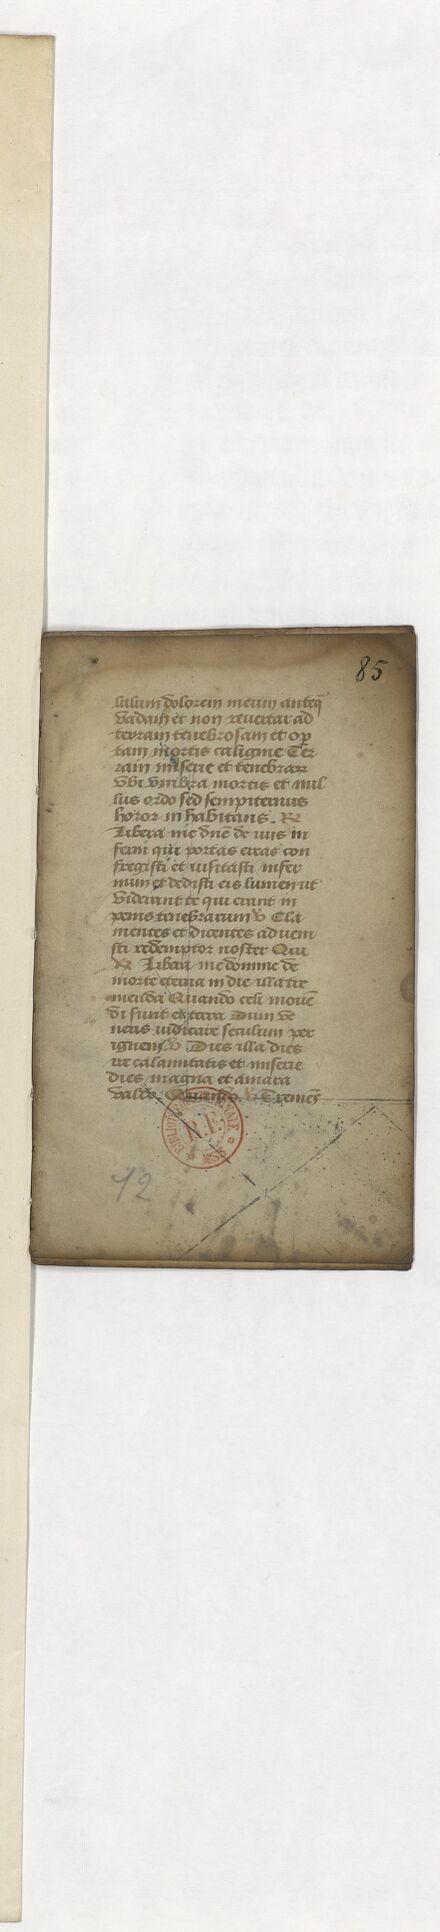 85
lulum dolorem meum anteq̄
vadam et non revertar ad
terram tenebrosam et op̄
tam mortis caligine Ter
ram miserie et tenebraꝝ
vbi vmbra mortis et nul
lus ordo sed sempiternus
horor in habitans. ℟
Libera me dn̄e de viis in
ferni qui portas ereas con
fregisti et visitasti infer
num et dedisti eis lumen ut
viderent te qui erant in
penis tenebrarum ℣ Cla
mentes et dicentes adueni
sti redemptor noster Qui
℟ Libera me domine de
morte eterna in die illa tre
menda Quando celi mouē
di sunt et terra Dum ve
neris iudicare seculum per
ignem ℣ Dies illa dies
ire calamitatis et miserie
dies magna et amara
valde Quando. ℣ Tremēs
12